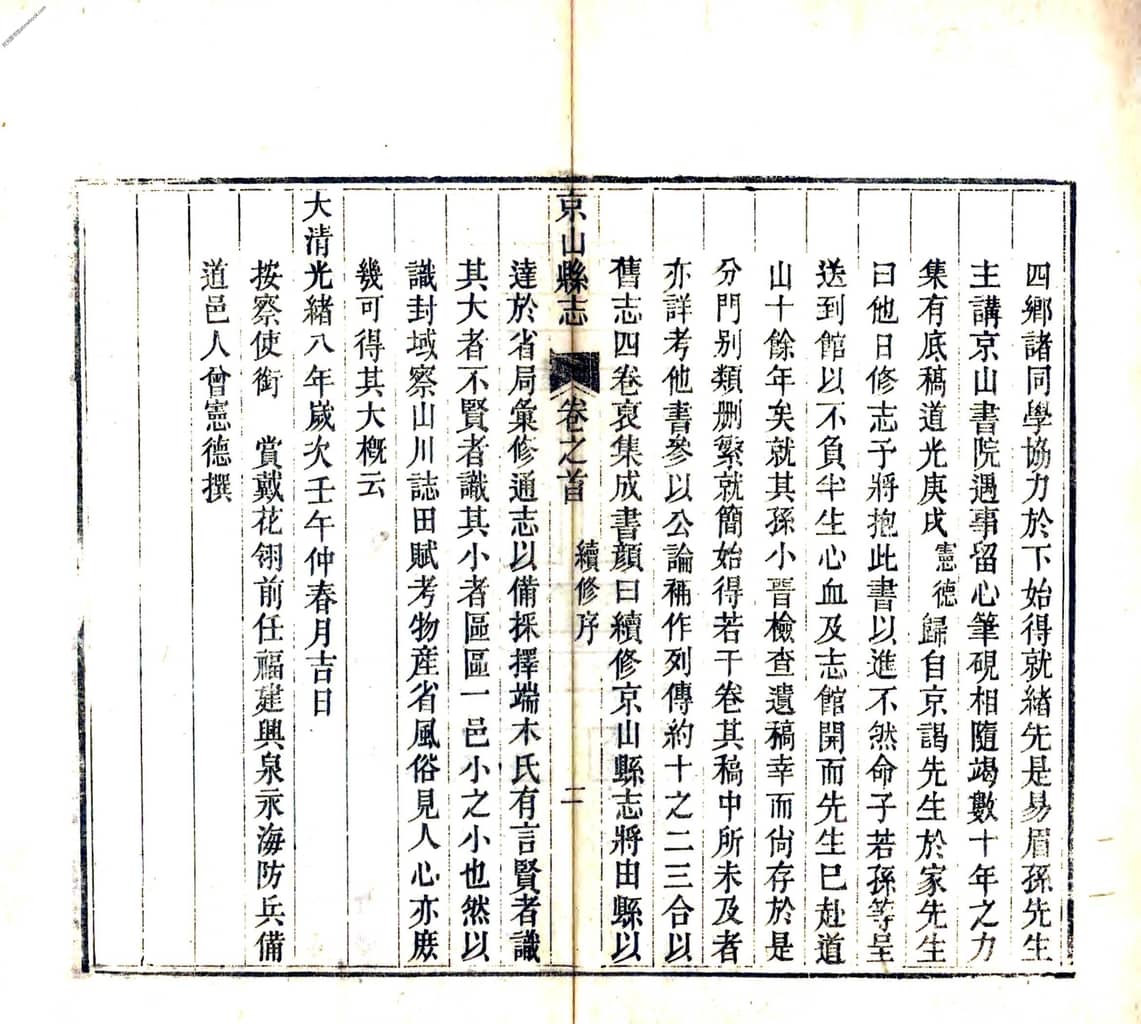 四鄉諸同學協力於下始得就緒先是易眉孫先生
主講京山書院遇事留心筆硯相隨竭數十年之力
集有底稿道光庚戌憲德歸自京謁先生於家先生
曰他日修志予將抱此書以進不然命子若孫等呈
送到館以不負半生心血及志館開而先生已赴道
山十餘年矣就其孫小晉檢查遺稿幸而尙存於是
分門別類刪繁就簡始得若干卷其稿中所未及者
亦詳考他書參以公論補作列傳約十之二三合以
舊志四卷裒集成書顏曰續修京山縣志將由縣以
京山縣志 卷之首 續修序 二
達於省局彙修通志以備採擇端木氏有言賢者識
其大者不賢者識其小者區區一邑小之小也然以
識封域察山川誌田賦考物產省風俗見人心亦庶
幾可得其大概云
大清光緒八年歲次壬午仲春月吉日
按察使銜 賞戴花翎前任福建興泉永海防兵備
道邑人曾憲德撰